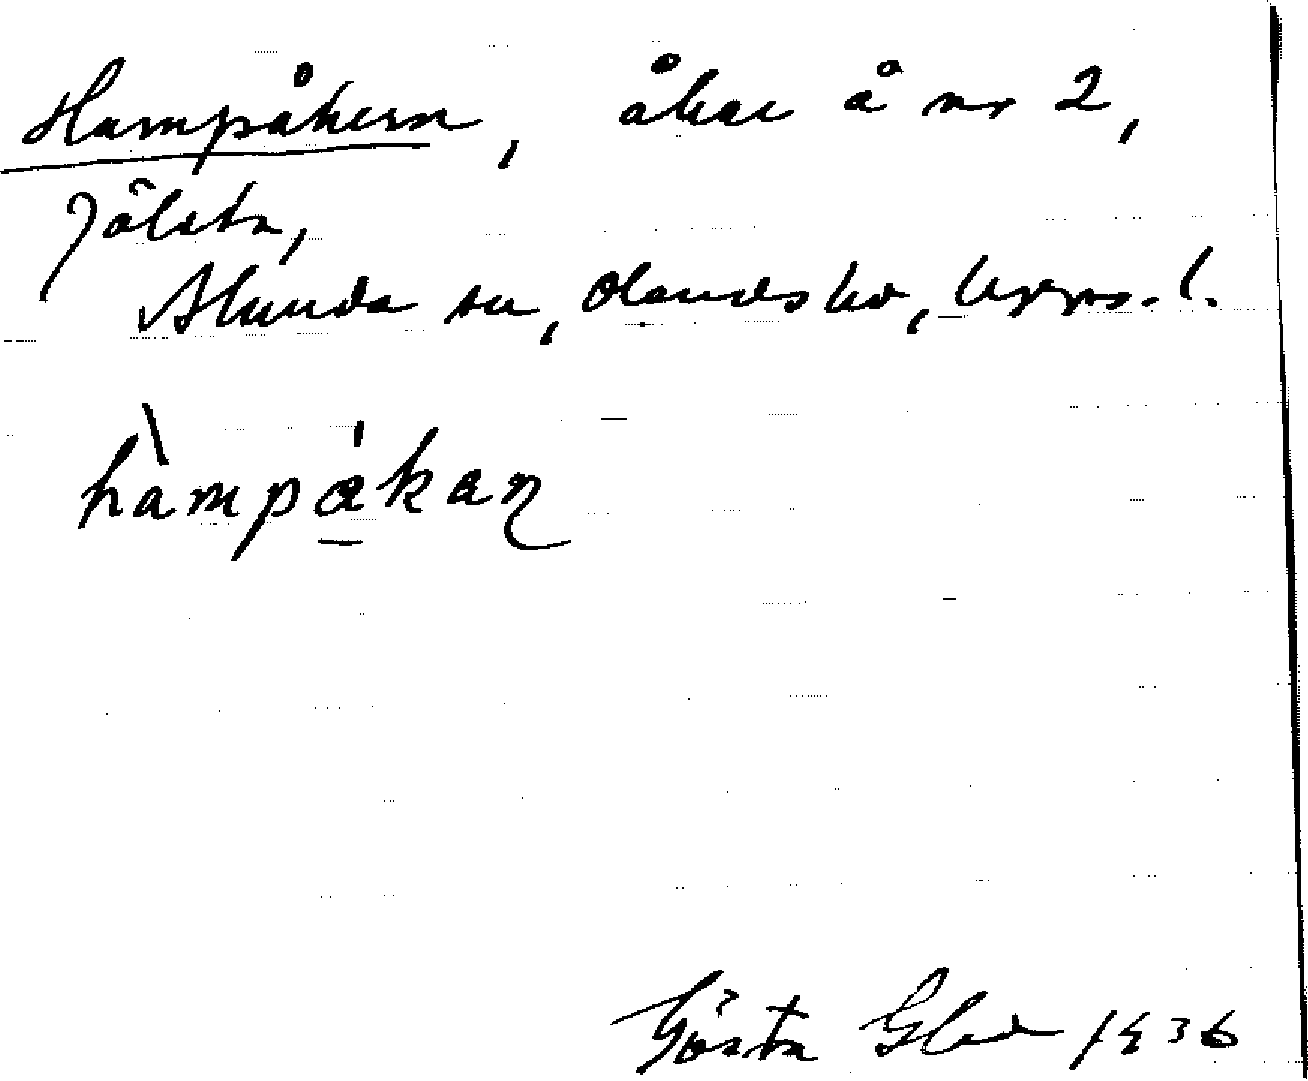 Hampåkern, åker å nr 2,
Jölsta,
Alunda sn, Olands hd, Upps. l.
hampåkaɳ
Gösta 1936